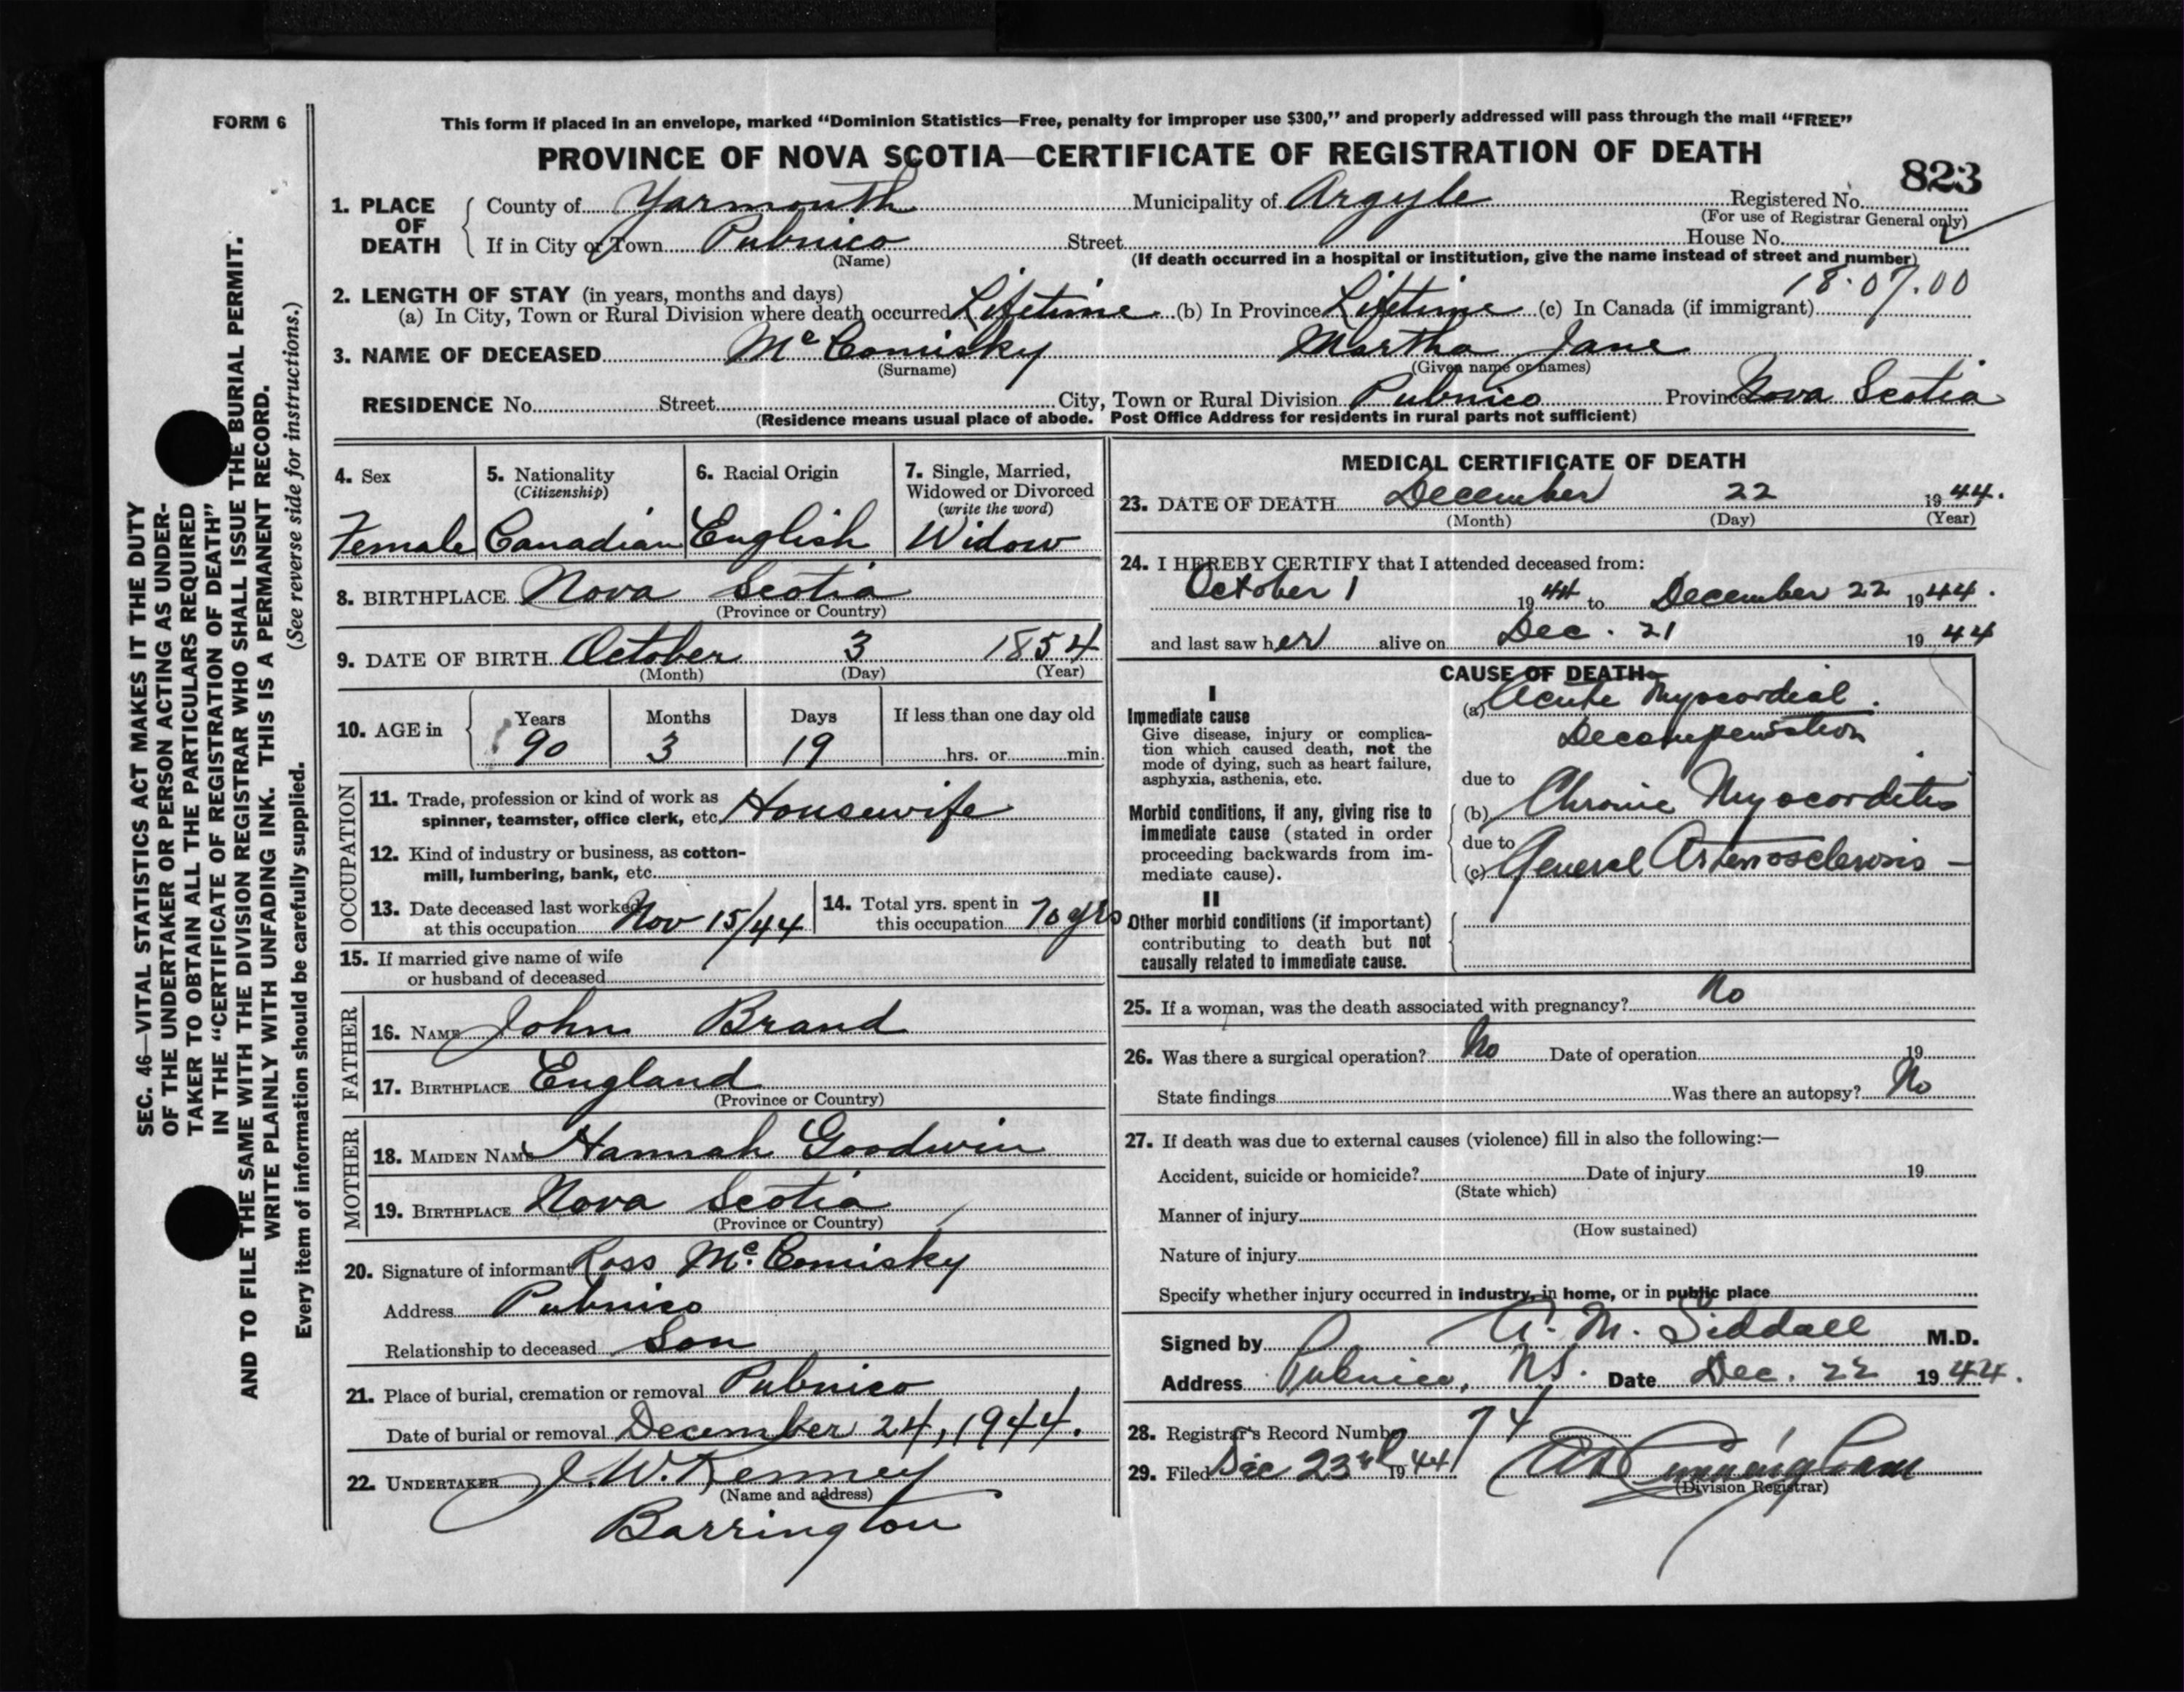 FORM 6
This form if placed in an envelope, marked “Dominion Statistics—Free, penalty for improper use $300,” and properly addressed will pass through the mail “FREE”
PROVINCE OF NOVA SCOTIA—CERTIFICATE OF REGISTRATION OF DEATH
823
1. PLACE OF DEATH
County of Yarmouth Municipality of Argyle Registered No.
(For use of Registrar General only)
If in City or Town Pubnico Street House No.
(Name) (If death occurred in a hospital or institution, give the name instead of street and number)
18.07.00
2. LENGTH OF STAY (in years, months and days)
(a) In City, Town or Rural Division where death occurred Lifetime (b) In Province Lifetime (c) In Canada (if immigrant)
3. NAME OF DECEASED McComisky Martha Jane
(Surname) (Given name or names)
RESIDENCE No. Street City, Town or Rural Division Pubnico Province Nova Scotia
(Residence means usual place of abode. Post Office Address for residents in rural parts not sufficient)
4. Sex
Female
5. Nationality
(Citizenship)
Canadian
6. Racial Origin
English
7. Single, Married,
Widowed or Divorced
(write the word)
Widow
8. BIRTHPLACE Nova Scotia
(Province or Country)
9. DATE OF BIRTH October 3 1854
(Month) (Day) (Year)
10. AGE in
Years Months Days If less than one day old
90 3 19 hrs. or min.
OCCUPATION
11. Trade, profession or kind of work as
spinner, teamster, office clerk, etc. Housewife
12. Kind of industry or business, as cotton-
mill, lumbering, bank, etc.
13. Date deceased last worked
at this occupation Nov 15/44
14. Total yrs. spent in
this occupation 70 yrs
15. If married give name of wife
or husband of deceased
FATHER
16. NAME John Brand
17. BIRTHPLACE England
(Province or Country)
MOTHER
18. MAIDEN NAME Hannah Goodwin
19. BIRTHPLACE Nova Scotia
(Province or Country)
20. Signature of informant Ross McComisky
Address Pubnico
Relationship to deceased Son
21. Place of burial, cremation or removal Pubnico
Date of burial or removal December 24, 1944.
22. UNDERTAKER J. W. Kenney
(Name and address)
Barrington
MEDICAL CERTIFICATE OF DEATH
23. DATE OF DEATH December 22 1944.
(Month) (Day) (Year)
24. I HEREBY CERTIFY that I attended deceased from:
October 1 1944 to December 22 1944.
and last saw her alive on Dec. 21 1944
CAUSE OF DEATH
I
Immediate cause
Give disease, injury or complica-
tion which caused death, not the
mode of dying, such as heart failure,
asphyxia, asthenia, etc.
(a) Acute Myocordial
Decompensation
due to
Morbid conditions, if any, giving rise to
immediate cause (stated in order
proceeding backwards from im-
mediate cause).
(b) Chronic Myocorditis
due to
(c) General Arteriosclerosis –
II
Other morbid conditions (if important)
contributing to death but not
causally related to immediate cause.
25. If a woman, was the death associated with pregnancy? No
26. Was there a surgical operation? No Date of operation 19
State findings Was there an autopsy? No
27. If death was due to external causes (violence) fill in also the following:—
Accident, suicide or homicide? Date of injury 19
(State which)
Manner of injury
(How sustained)
Nature of injury
Specify whether injury occurred in industry, in home, or in public place
Signed by A. M. Siddall M.D.
Address Pubnico, NS. Date Dec. 22 1944.
28. Registrar's Record Number 74
29. Filed Dec 23rd 1944 Cunningham
(Division Registrar)
SEC. 46—VITAL STATISTICS ACT MAKES IT THE DUTY
OF THE UNDERTAKER OR PERSON ACTING AS UNDER-
TAKER TO OBTAIN ALL THE PARTICULARS REQUIRED
IN THE “CERTIFICATE OF REGISTRATION OF DEATH”
AND TO FILE THE SAME WITH THE DIVISION REGISTRAR WHO SHALL ISSUE THE BURIAL PERMIT.
WRITE PLAINLY WITH UNFADING INK. THIS IS A PERMANENT RECORD.
Every item of information should be carefully supplied. (See reverse side for instructions.)